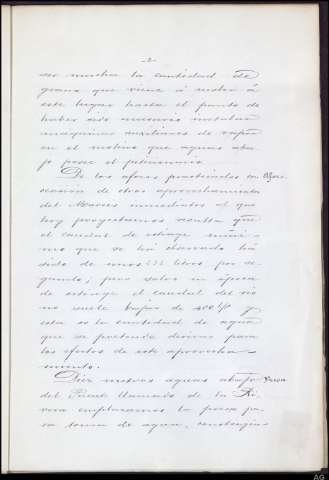 -2-
ser mucha la cantidad de
grano que viene á moler á
este lugar hasta el punto de
haber sido necesario instalar
máquinas auxiliares de vapor
en el molino que aguas aba-
jo posee el peticionario.
De los aforos practicados con
ocasión de otros aprovechamientos
del Manzanares inmediatos al que
hoy proyectamos resulta que
el caudal de estiaje míni-
mo que se ha observado ha
sido de unos litros por se-
gundo; pero salvo en época
de estiaje el caudal del rio
no suele bajar de 400 l/s y
esta es la cantidad de agua
que se pretende derivar para
los efectos de este aprovecha-
miento.
Diez metros aguas abajo Presa
del Puente llamado de la Ri-
vera emplazamos la presa pa-
ra toma de agua,
AG